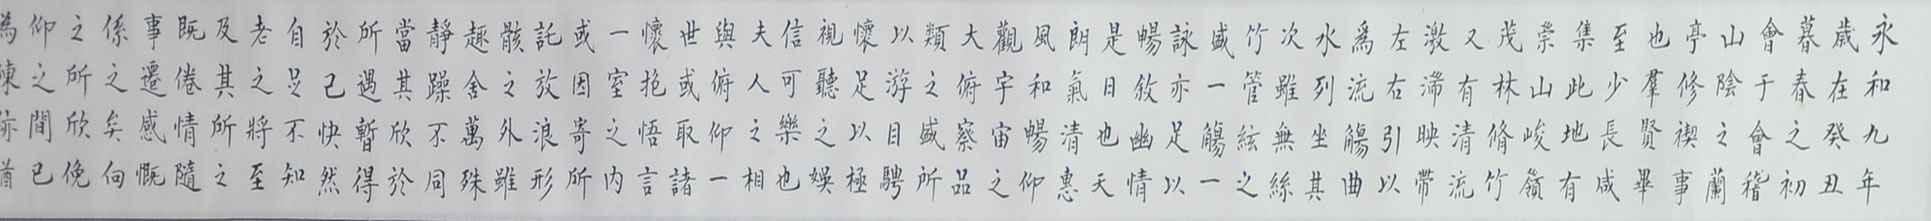 永和九年
歲在癸丑
暮春之初
會于會稽
山陰之蘭
亭修禊事
也羣賢畢
至少長咸
集此地有
崇山峻嶺
茂林脩竹
又有清流
激湍映帶
左右引以
為流觴曲
水列坐其
次雖無絲
竹管絃之
盛一觴一
詠亦足以
暢敘幽情
是日也天
朗氣清惠
風和暢仰
觀宇宙之
大俯察品
類之盛所
以游目騁
懷足以極
視聽之娛
信可樂也
夫人之相
與俯仰一
世或取諸
懷抱悟言
一室之內
或因寄所
託放浪形
骸之外雖
趣舍萬殊
靜躁不同
當其欣於
所遇暫得
於己快然
自足不知
老之將至
及其所之
既倦情隨
事遷感慨
係之矣向
之所欣俛
仰之間已
為陳